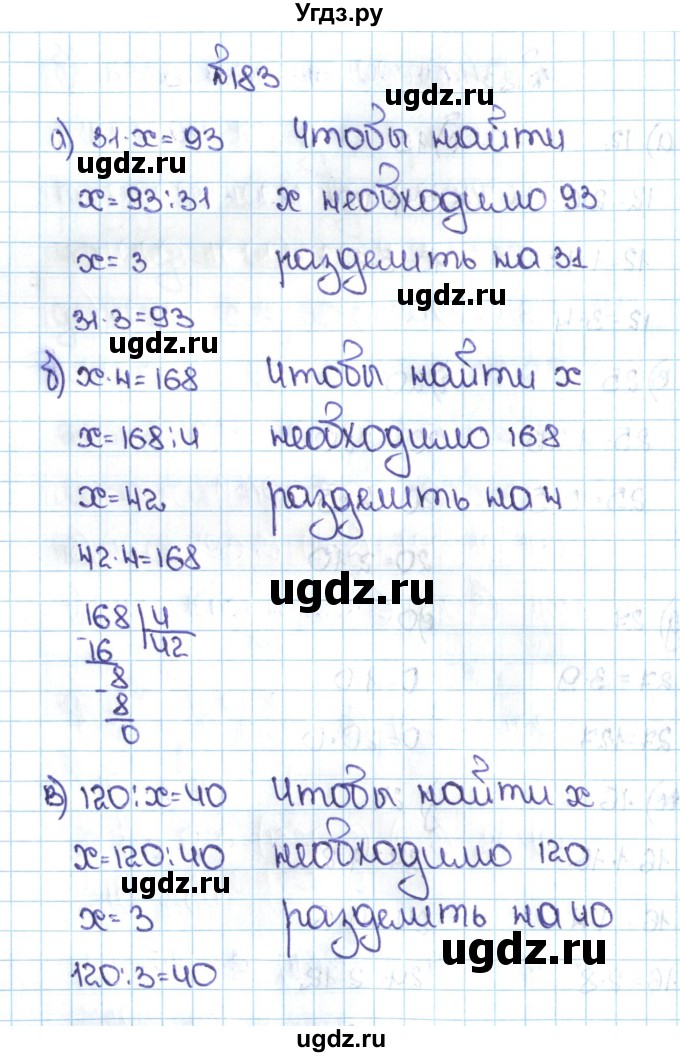 Угдз.ру
№183
а) 31·x=93 Чтобы найти
x=93:31 x необходимо 93
x=3 разделить на 31
31·3=93
б) x·4=168 Чтобы найти x
x=168:4 необходимо 168
x=42 разделить на 4
42·4=168
168 4
-16 42
-8
8
0
в) 120:x=40 Чтобы найти x
x=120:40 необходимо 120
x=3 разделить на 40
120:3=40
ugdz.ru
ugdz.ru
ugdz.ru
ugdz.ru
ugdz.ru
ugdz.ru
ugdz.ru
ugdz.ru